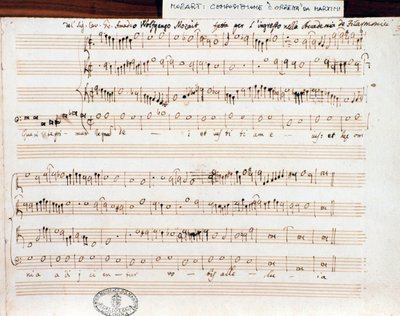 MOZART: COMPOSIZIONE CORRETTA DA MARTINI
del Sig. Cav. Amadeo Wolfgango Mozart, fatta per l'ingresso nella Accademia de Filarmonici
Quærite primum regnum De - i et justitiam e - jus: et hæc om
nia adjicientur vo - bis alle - lu - ia